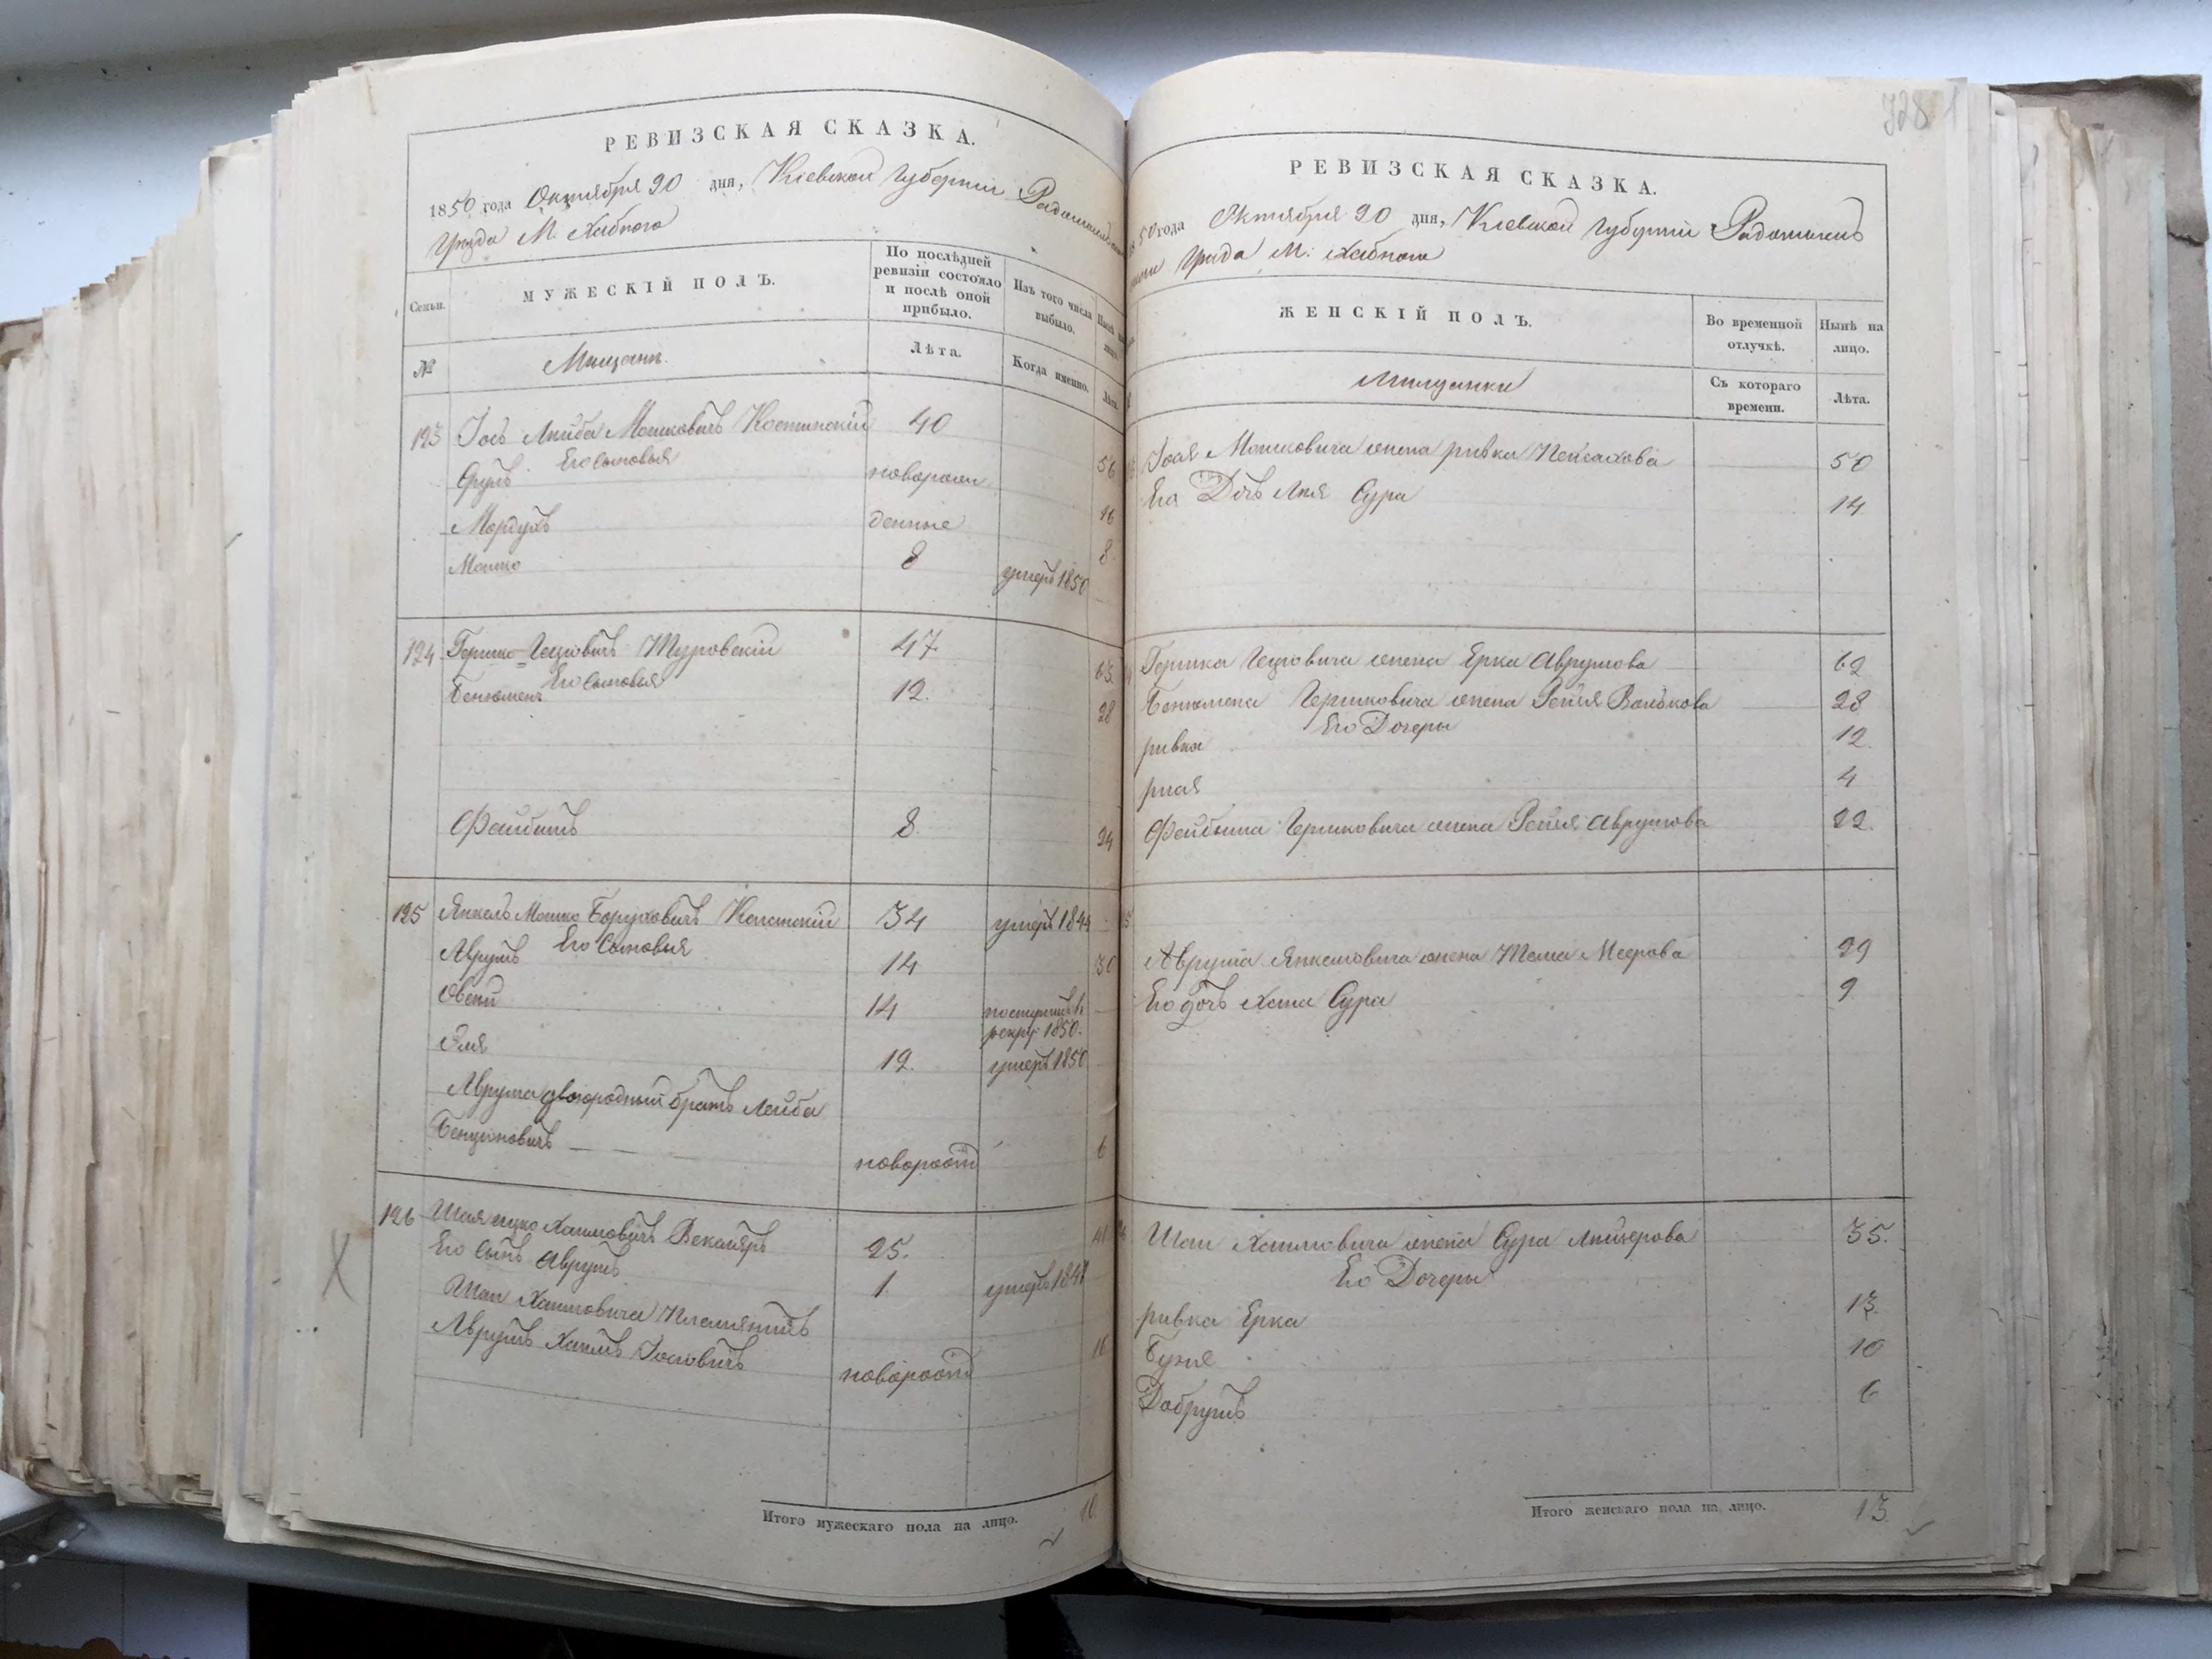 РЕВИЗСКАЯ СКАЗКА.
1850 года Октября 20 дня, Кіевской Губерніи Радомысльской
Уезда М. Хабного
Семьи.
МУЖЕСКІЙ ПОЛЪ.
По послѣдней ревизіи состояло и послѣ оной прибыло.
Изъ того числа выбыло.
№
Мищане.
Лѣта.
Когда именно.
Лѣта.
123 Іось Лейба Мошковичъ 40 56
Его сыновья
Сруль новорож 16
Мордухъ денные 8
Мошко 8 умеръ 1850
124 Гершко Гецовичъ Туровскій 47 63
Его сыновья
Бенюменъ 12. 28
Файбишъ 8. 24
125 Янкель Мошко Боруховичъ 34 умеръ 1844
Его Сыновья
Аврумъ 14 30
Овсей 14 поступилъ в рекру 1850.
Эля 12. умеръ 1850
Аврума двоюродный братъ Лейба
Бенціоновичъ новорожд 6
126 Шая Ицко Хаимовичъ 25. 41
Его сынъ Аврумъ 1. умеръ 1841
Шаи Хаимовича Племянникъ
Аврумъ Хаимъ Іосіовичъ новорожд 16
Итого мужескаго пола на лицо. 10.
328
РЕВИЗСКАЯ СКАЗКА.
1850 года Октября 20 дня, Кіевской Губерніи Радомысль
ской Уезда М. Хабного
ЖЕНСКІЙ ПОЛЪ.
Во временной отлучкѣ.
Нынѣ на лицо.
Мищанки
Съ котораго времени.
Лѣта.
Іося Мошковича жена ривка Пейсахова 50
Его Дочь Лея Сура 14
Гершка Гецовича жена Ерка Аврумова 62
Бенюмена Гершковича жена Рейзя Волькова 28
Его Дочеры
ривка 12.
4
Файбиша Гершковича жена Рейзя Аврумова 22.
Аврума Янкелювича жена Тема Меерова 29
Его дочь Хана Сура 9
Шаи Хаимовича жена Сура Лейзерова 35.
Его Дочеры
ривка Ерка 13.
Бузя 10
Добрушъ 6
Итого женскаго пола на лицо. 13